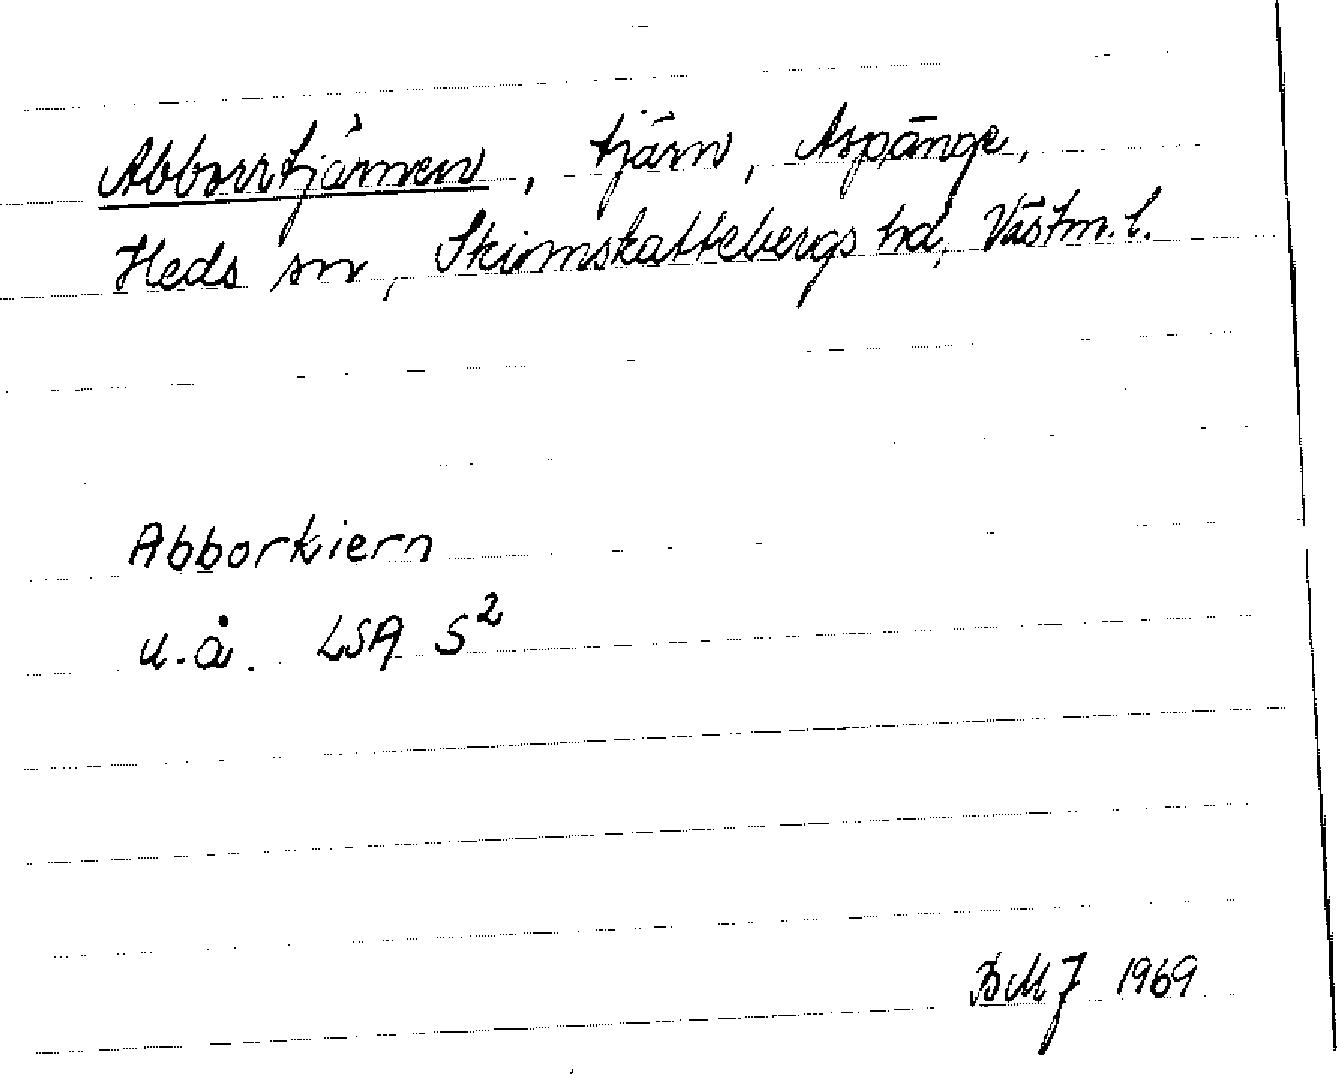 Abborrtjärnen, tjärn, Aspänge,
Heds sn, Skinnskattebergs hd, Västm. l.
Abborkiern
u.å. LSA S²
BMJ 1969